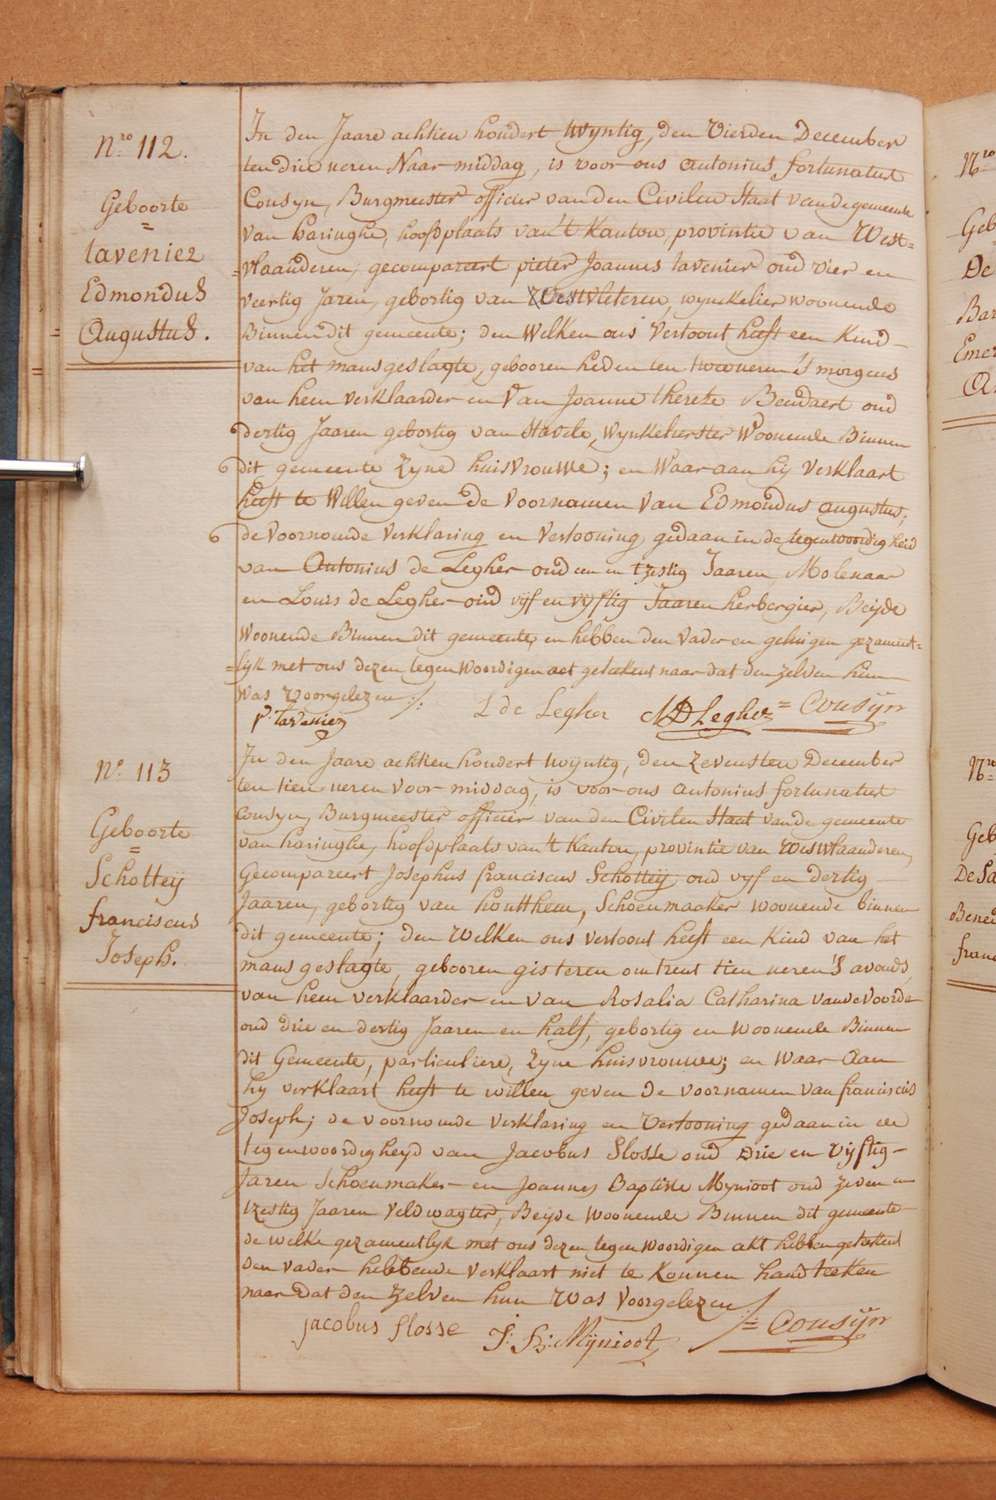 Nro 112.
Geboorte
=
tavenier
Edmondus
Augustus.
In den Jaare achtien hondert twyntig, den Vierden December
ten drie ueren Naar middag, is voor ons antonius fortunatus
Cousyn, Burgmeester officier van den Civilen Staat van de gemeente
van haringhe, hoofplaats van 't Kanton, provintie van West=
=vlaanderen, gecompareert pieter Joannes tavenier oud vier en
veertig Jaren, gebortig van Westvleteren, wynkelier woonende
Binnen dit gemeente; den Welken ons Vertoont heeft een Kind
van het mansgeslagte, gebooren heden ten twee ueren 's morgens
van hem verklaarder en Van Joanne therese Bendaert oud
dertig Jaaren gebortig van Stavele, Wynkelierster Woonende Binnen
dit gemeente Zyne huisvrouwe; en Waar aan hy Verklaart
heeft te Willen geven de Voornamen Van Edmondus augustus;
de Voornoemde Verklaring en Vertooning gedaan in de tegenwoordigheid
van Antonius de Legher oud een en tzestig Jaaren, Molenaar
en Louis de Legher oud vyf en vyftig Jaaren herbergier, Beyde
Woonende Binnen dit gemeente, en hebben den Vader en getuigen gezament=
=lyk met ons dezen tegenwoordigen act getekent naar dat den zelven hem
Was Voorgelezen ./.
p: tavenier L de Legher AD Legher = Cousÿn
No 113
Geboorte
=
Schotteÿ
franciscus
Joseph.
In den Jaare achtien hondert twyntig, den Zevensten December
ten tien ueren voor middag, is voor ons antonius fortunatus
Cousyn, Burgmeester officier van den Civilen Staat van de gemeente
van haringhe, hoofdplaats van 't Kanton, provintie van Westvlaanderen,
Gecompareert Josephus franciscus Schotteÿ oud vyf en dertig
Jaaren, gebortig van houtthem, Schoenmaaker woonende binnen
dit gemeente; den Welken ons vertoont heeft een Kind van het
mans geslagte, gebooren gisteren omtrent tien ueren 's avonds,
van hem verklaarder en van Rosalia Catharina vande Voorde
oud drie en dertig Jaaren en half, gebortig en woonende Binnen
dit Gemeente, particuliere, Zyne huisvrouwe; en waar aan
hy verklaart heeft te willen geven de voornamen van franciscus
Joseph; de voornoemde verklaring en Vertooning gedaan in de
tegenwoordigheyd van Jacobus Slosse oud drie en vyftig
Jaren Schoenmaker en Joannes Baptiste Mynioot oud zeven en
tzestig Jaaren Veldwagter, Beyde woonende Binnen dit gemeente
de welke gezamentlyk met ons dezen tegenwoordigen akt hebben getekent
den vader hebbende verklaart niet te Konnen handteeken
naer dat den Zelven hun Was Voorgelezen ./.
jacobus slosse J: B: Mÿnioot = Cousÿn
Nro
Geb
De
Bar
Emer
Nro
Geb
De Sa
Bened
fran